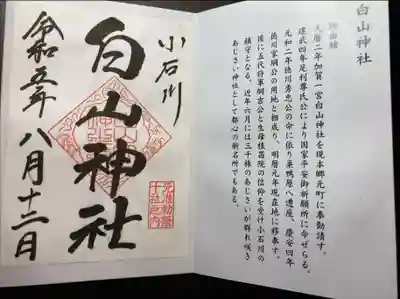 白山神社
御由緒
天暦二年加賀一宮白山神社を現本郷元町に奉勧請す。
建武四年足利尊氏公により国家平安御祈願所に命ぜらる。
元和二年徳川秀忠公の命に依り巣鴨原へ遷座、慶安四年
徳川家綱公の用地と相成り、明暦元年現在地に移奉す。
後に五代将軍綱吉公と生母桂昌院の信仰を受け小石川の
鎮守となる。近年六月には三千株のあじさいが群れ咲き
あじさい神社として都心の新名所でもある。
小石川
白山神社
令和五年八月十二日